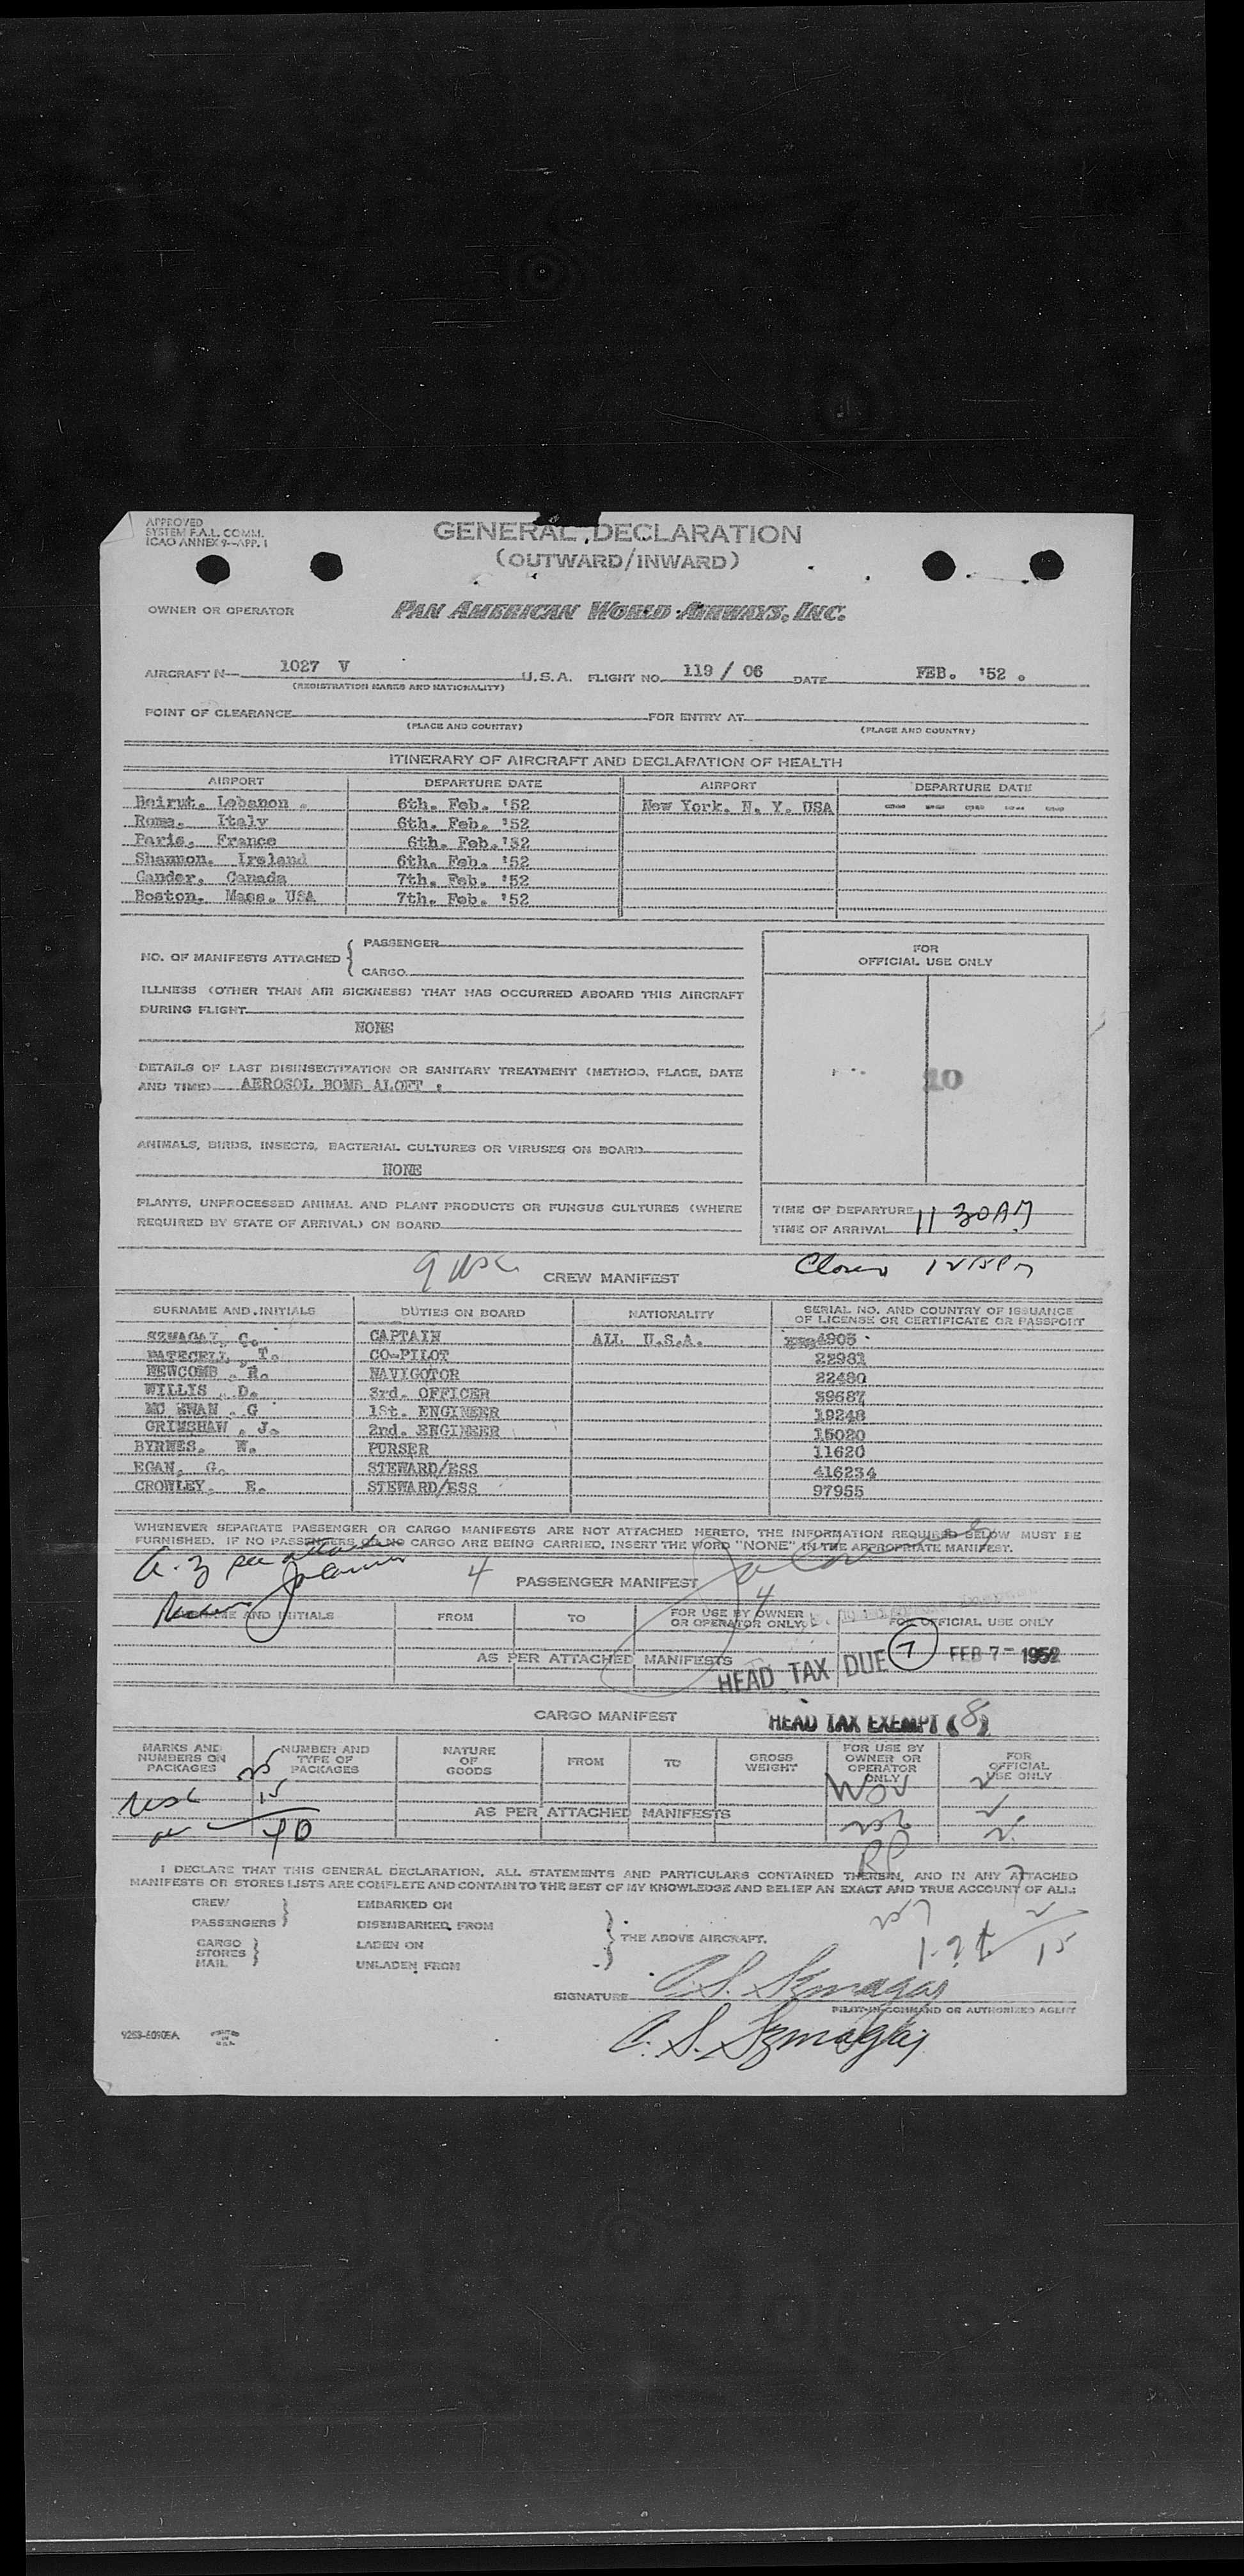 APPROVED
SYSTEM F.A.L. COMM.
ICAO ANNEX 9—APP. 1
GENERAL DECLARATION
(OUTWARD/INWARD)
OWNER OR OPERATOR PAN AMERICAN WORLD AIRWAYS, INC.
AIRCRAFT N— 1027 V U.S.A. FLIGHT NO. 119 / 06 DATE FEB. '52 .
(REGISTRATION MARKS AND NATIONALITY)
POINT OF CLEARANCE FOR ENTRY AT
(PLACE AND COUNTRY) (PLACE AND COUNTRY)
ITINERARY OF AIRCRAFT AND DECLARATION OF HEALTH
AIRPORT DEPARTURE DATE AIRPORT DEPARTURE DATE
Beirut. Lebanon . 6th. Feb. '52 New York. N. Y. USA -- -- -- -- --
Rome. Italy 6th. Feb. '52
Paris. France 6th. Feb.'52
Shannon. Ireland 6th. Feb. '52
Gander. Canada 7th. Feb. '52
Boston. Mass. USA 7th. Feb. '52
NO. OF MANIFESTS ATTACHED { PASSENGER
CARGO
FOR
OFFICIAL USE ONLY
ILLNESS (OTHER THAN AIR SICKNESS) THAT HAS OCCURRED ABOARD THIS AIRCRAFT
DURING FLIGHT
NONE
DETAILS OF LAST DISINSECTIZATION OR SANITARY TREATMENT (METHOD, PLACE, DATE
AND TIME) AEROSOL BOMB ALOFT .
10
ANIMALS, BIRDS, INSECTS, BACTERIAL CULTURES OR VIRUSES ON BOARD
NONE
PLANTS, UNPROCESSED ANIMAL AND PLANT PRODUCTS OR FUNGUS CULTURES (WHERE
REQUIRED BY STATE OF ARRIVAL) ON BOARD
TIME OF DEPARTURE
TIME OF ARRIVAL 11 30AM
9 usc CREW MANIFEST
SURNAME AND INITIALS DUTIES ON BOARD NATIONALITY SERIAL NO. AND COUNTRY OF ISSUANCE
OF LICENSE OR CERTIFICATE OR PASSPORT
SZMAGAJ, C. CAPTAIN ALL U.S.A. 4905
T. CO-PILOT 22981
NEWCOMB . R. NAVIGOTOR 22480
WILLIS . D. 3rd. OFFICER 39687
MC EWAN . G 1St. ENGINEER 19248
GRIMSHAW . J. 2nd. ENGINEER 15020
BYRNES. W. PURSER 11620
EGAN. G. STEWARD/ESS 416234
CROWLEY. E. STEWARD/ESS 97955
WHENEVER SEPARATE PASSENGER OR CARGO MANIFESTS ARE NOT ATTACHED HERETO, THE INFORMATION REQUIRED BELOW MUST BE
FURNISHED. IF NO PASSENGERS OR NO CARGO ARE BEING CARRIED, INSERT THE WORD "NONE" IN THE APPROPRIATE MANIFEST.
4 PASSENGER MANIFEST
4
SURNAME AND INITIALS FROM TO FOR USE BY OWNER
OR OPERATOR ONLY FOR OFFICIAL USE ONLY
AS PER ATTACHED MANIFESTS
HEAD TAX DUE 7 FEB 7- 1952
CARGO MANIFEST HEAD TAX EXEMPT (8)
MARKS AND
NUMBERS ON
PACKAGES
NUMBER AND
TYPE OF
PACKAGES
NATURE
OF
GOODS
FROM
TO
GROSS
WEIGHT
FOR USE BY
OWNER OR
OPERATOR
ONLY
FOR
OFFICIAL
USE ONLY
25
usc 15
40
AS PER ATTACHED MANIFESTS
I DECLARE THAT THIS GENERAL DECLARATION, ALL STATEMENTS AND PARTICULARS CONTAINED THEREIN, AND IN ANY ATTACHED
MANIFESTS OR STORES LISTS ARE COMPLETE AND CONTAIN TO THE BEST OF MY KNOWLEDGE AND BELIEF AN EXACT AND TRUE ACCOUNT OF ALL:
CREW
PASSENGERS
CARGO
STORES
MAIL
EMBARKED ON
DISEMBARKED FROM
LADEN ON
UNLADEN FROM
THE ABOVE AIRCRAFT.
SIGNATURE C. S. Szmagaj
PILOT-IN-COMMAND OR AUTHORIZED AGENT
C. S. Szmagaj
9253-50905A
PRINTED
IN
U.S.A.